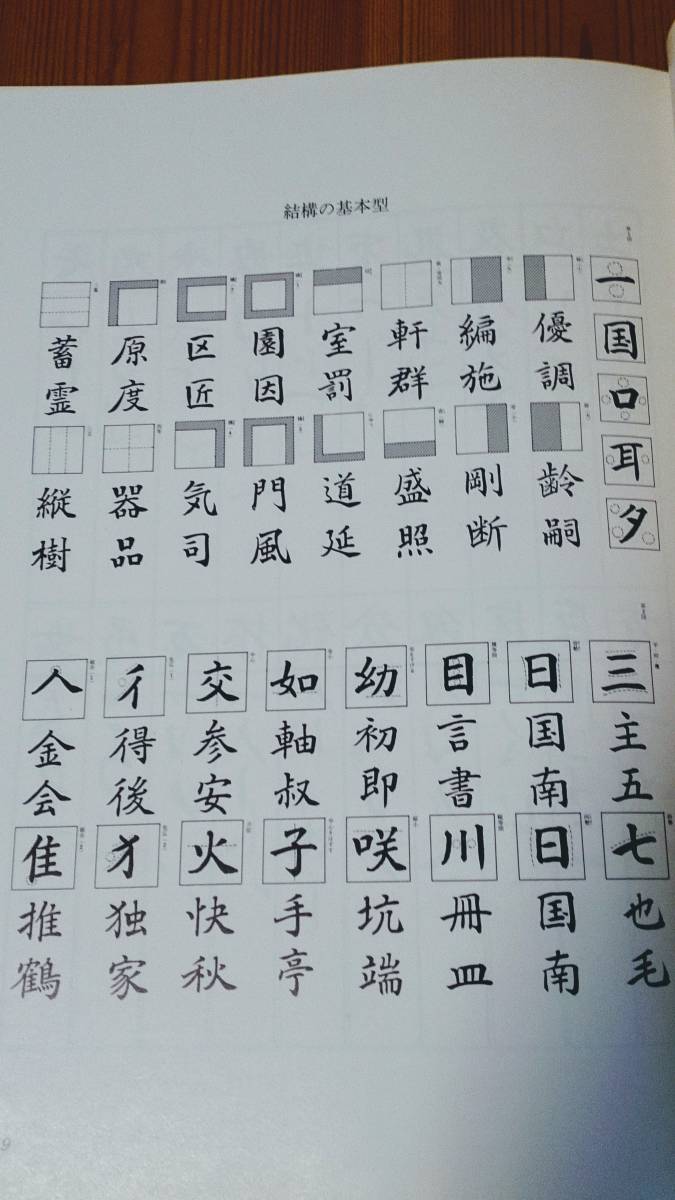 結構の基本型
一
国
口
耳
夕
優調
編施
軒群
室罰
園因
区匠
原度
蓄霊
齢嗣
剛断
盛照
道延
門風
気司
器品
縦樹
三
主五
日
国南
目
言書
幼
初即
如
軸叔
交
参安
彳
得後
人
金会
七
也毛
日
国南
川
冊皿
咲
坑端
子
手亭
火
快秋
犭
独家
隹
推鶴
9